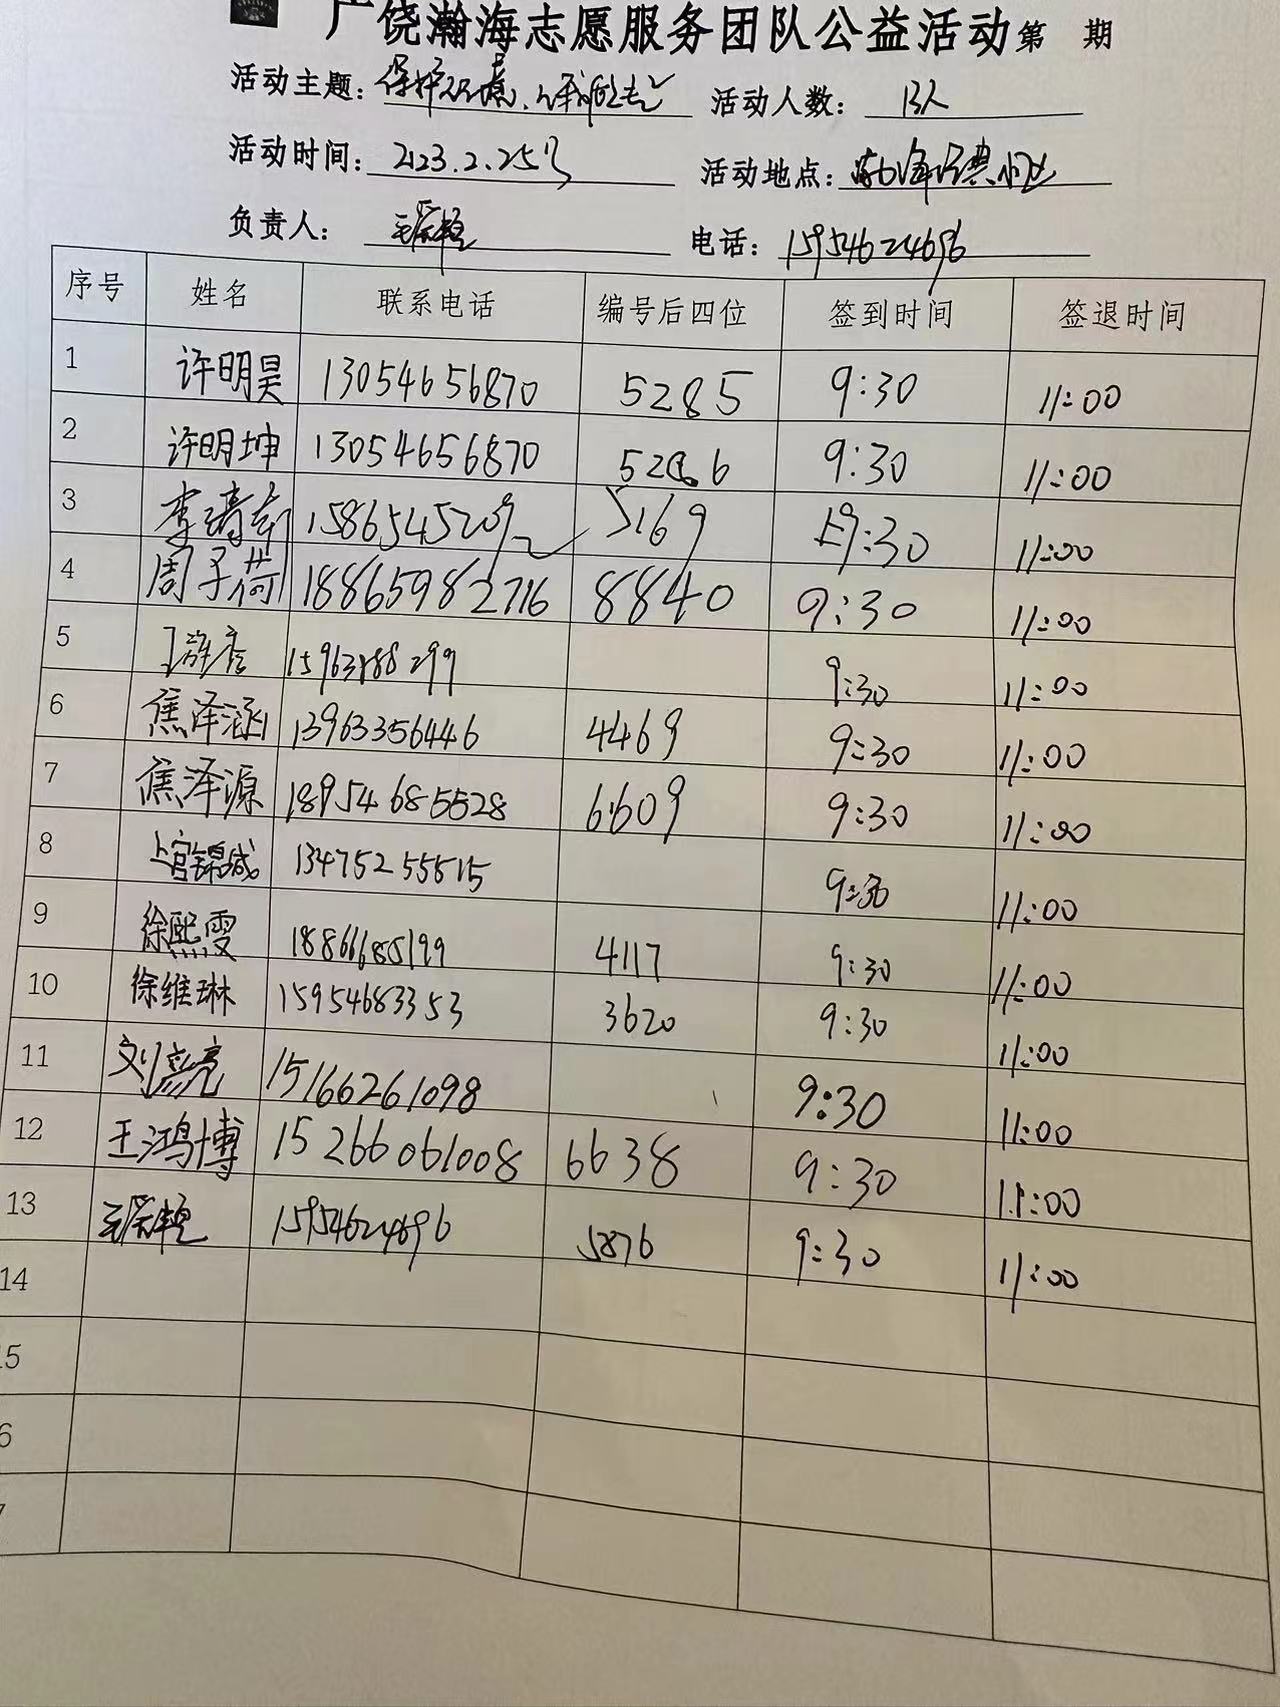 广饶瀚海志愿服务团队公益活动第 期
活动主题: 保护环境、从我做起 活动人数: 13人
活动时间: 2023.2.25日 活动地点:
负责人: 电话: 15954624696
序号 姓名 联系电话 编号后四位 签到时间 签退时间
1 许明昊 13054656870 5285 9:30 11:00
2 许明坤 13054656870 5286 9:30 11:00
3 5169 9:30 11:00
4 周子荷 18865982716 8840 9:30 11:00
5 9:30 11:00
6 焦泽涵 13963356446 4469 9:30 11:00
7 焦泽源 18954685528 6609 9:30 11:00
8 上官锦城 13475255515 9:30 11:00
9 徐熙雯 4117 9:30 11:00
10 徐维琳 15954683353 3620 9:30 11:00
11 15166261098 9:30 11:00
12 王鸿博 15266061008 6638 9:30 11:00
13 15954624696 5876 9:30 11:00
14
15
6
7